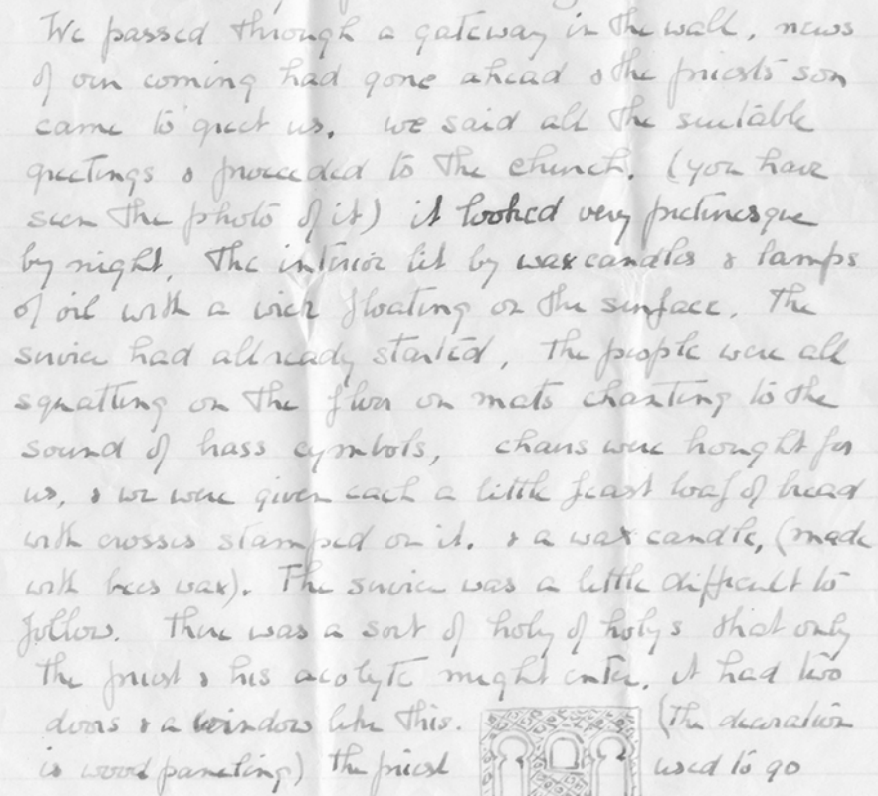 We passed through a gateway in the wall, news
of our coming had gone ahead & the priests son
came to greet us. we said all the suitable
greetings & proceeded to the church. (you have
seen the photo of it) it looked very picturesque
by night. The interior lit by wax candles & lamps
of oil with a wick floating on the surface. The
service had allready started, the people were all
squatting on the floor on mats chanting to the
sound of brass cymbols, chairs were brought for
us, & we were given each a little feast loaf of bread
with crosses stamped on it. & a wax candle, (made
with bees wax). The service was a little difficult to
follow. There was a sort of holy of holys that only
the priest & his acolyte might enter. it had two
doors & a window like this. (The decoration
is wood paneling) the priest used to go